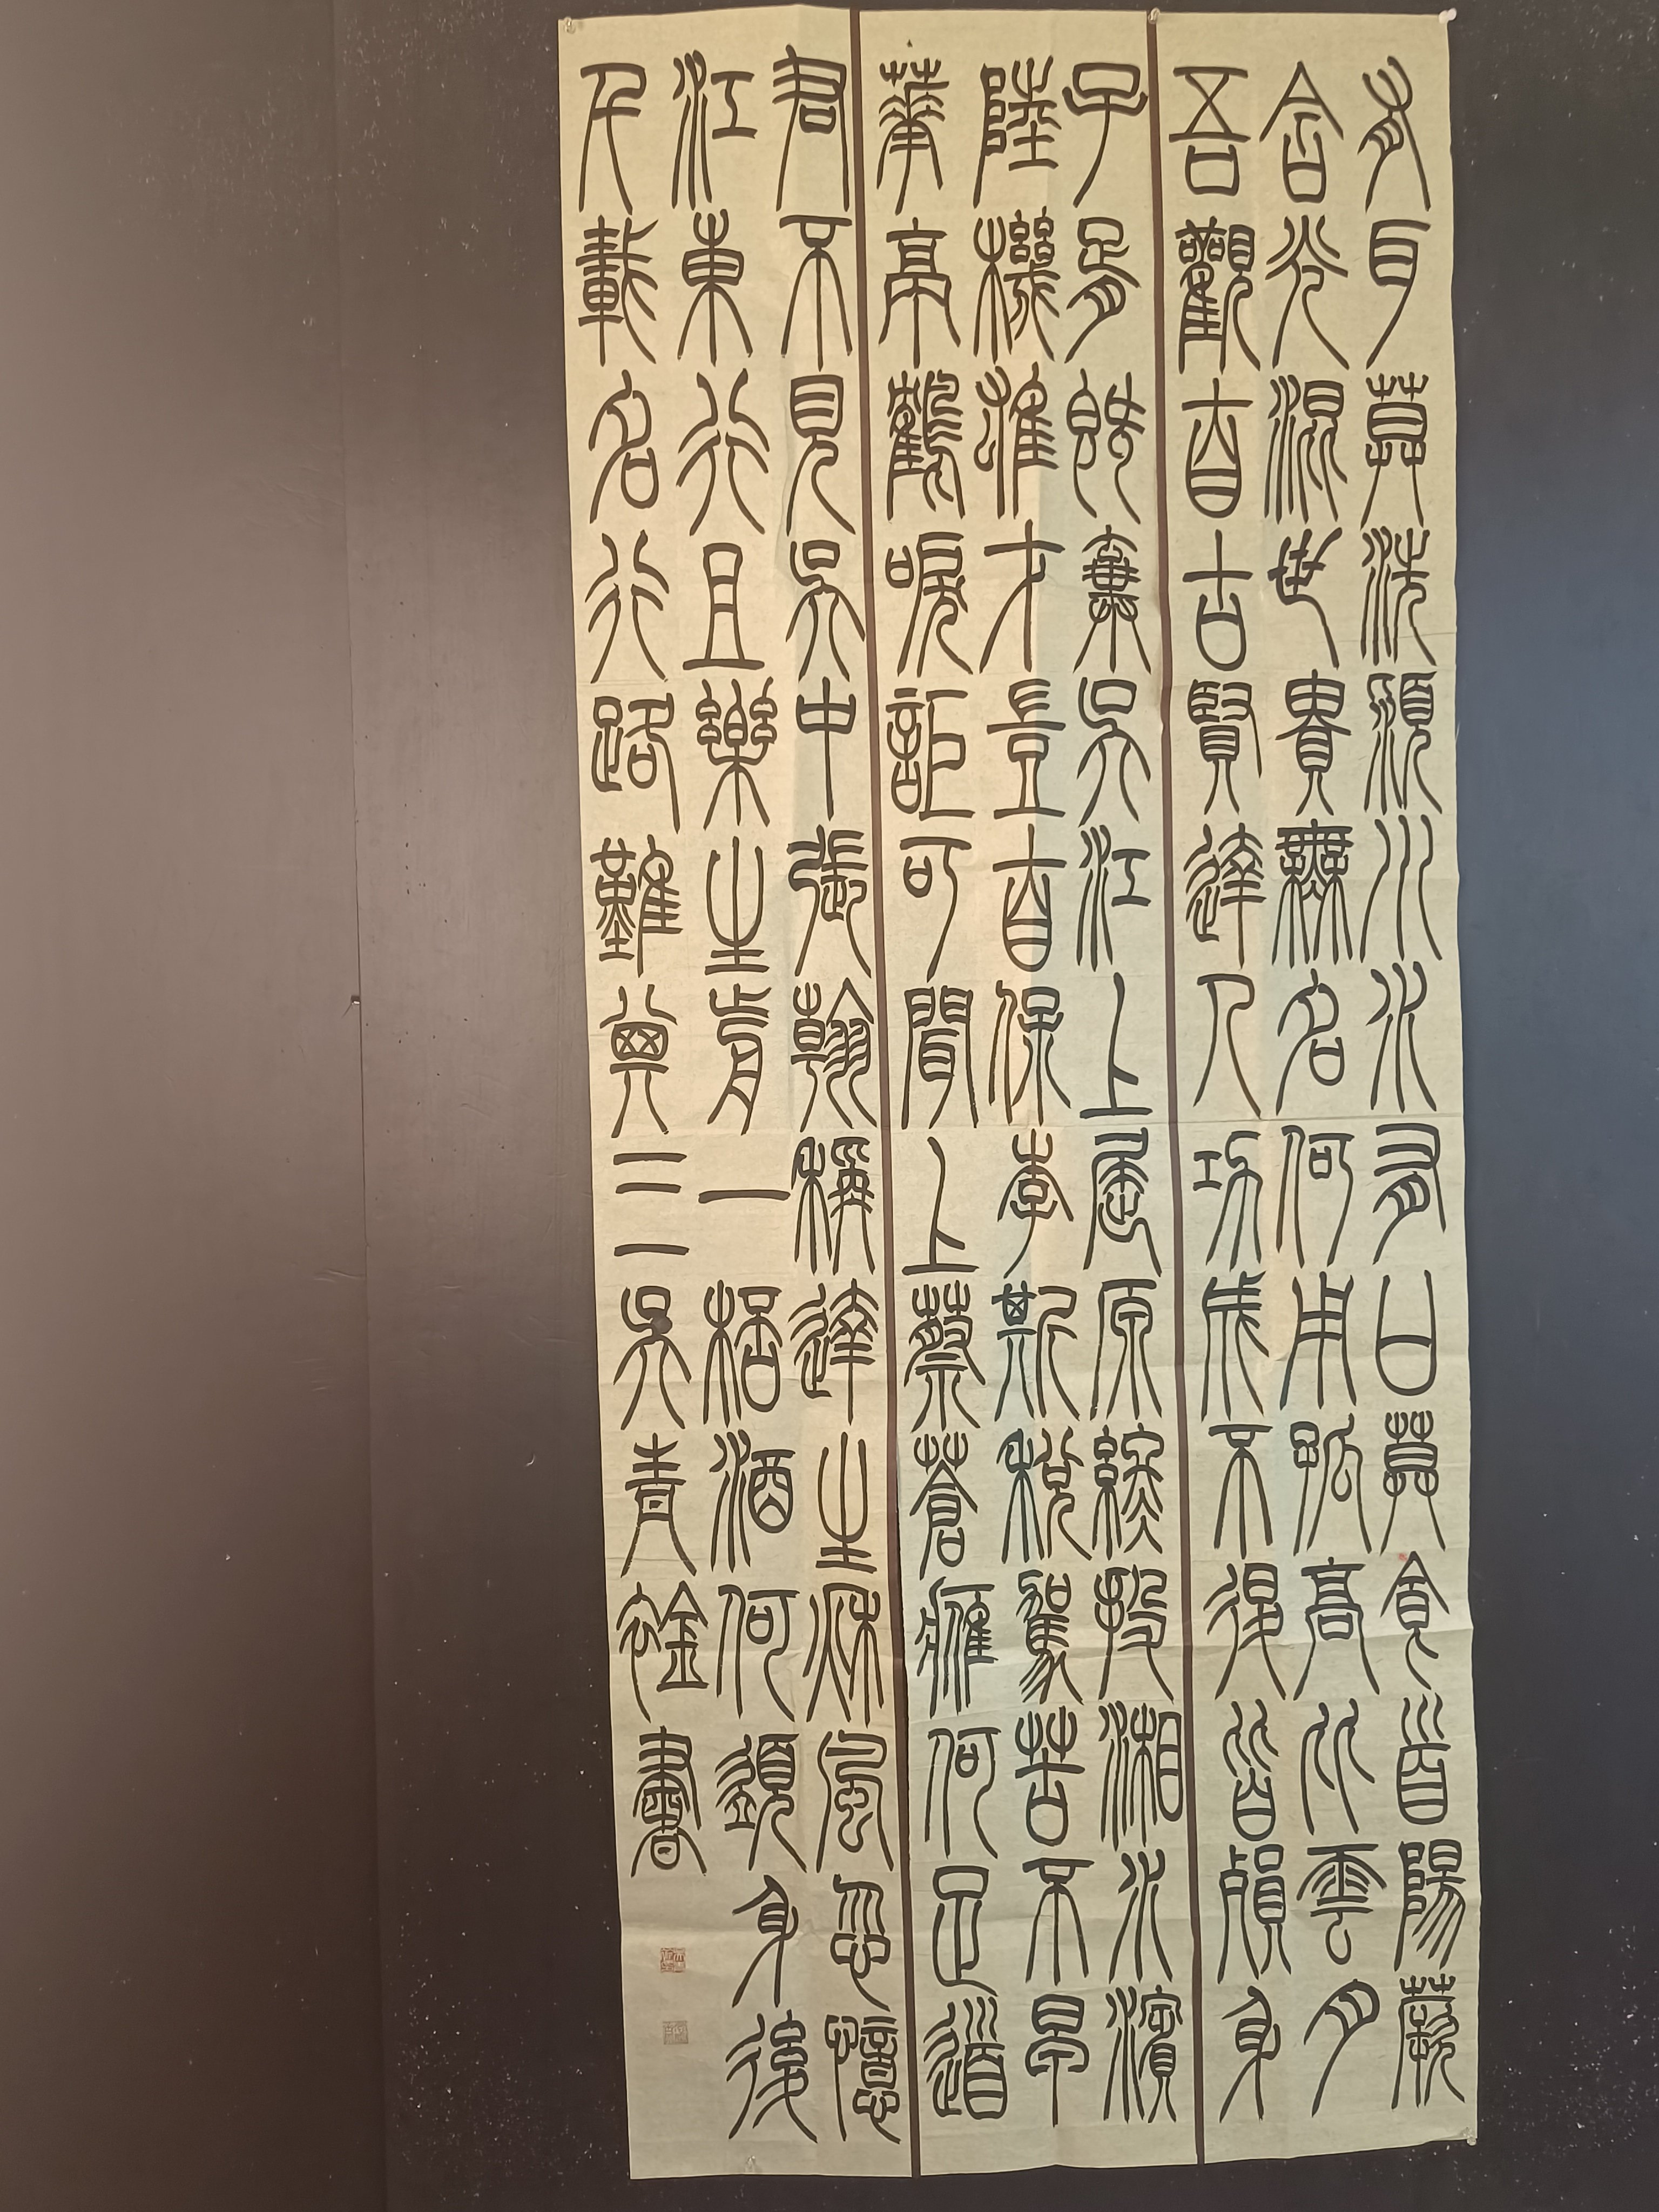 有耳莫洗潁川水有口莫食首陽蕨
含光混世貴無名何用孤高比雲月
吾觀自古賢達人功成不退皆殞身
子胥既棄吳江上屈原終投湘水濱
陸機雄才豈自保李斯稅駕苦不早
華亭鶴唳詎可聞上蔡蒼鷹何足道
君不見吳中張翰稱達生秋風忽憶
江東行且樂生前一桮酒何須身後
千載名行路難其三吳青書